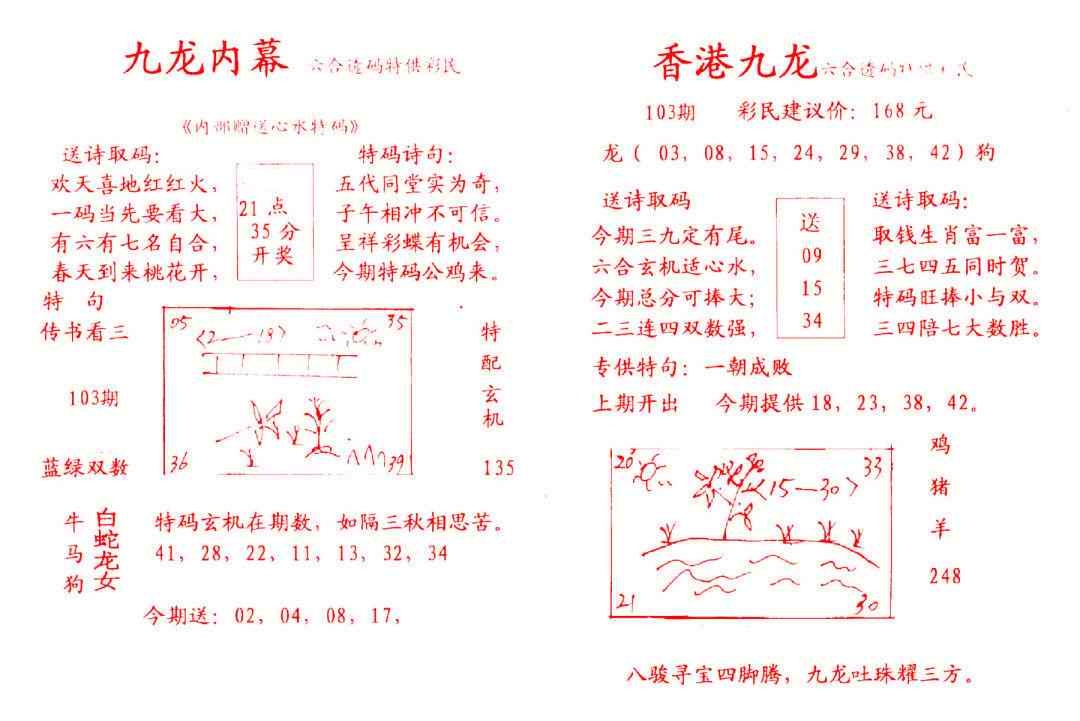 九龙内幕 六合透码特供彩民
《内部赠送心水特码》
送诗取码：
欢天喜地红红火，
一码当先要看大，
有六有七名自合，
春天到来桃花开，
21点
35分
开奖
特码诗句：
五代同堂实为奇，
子午相冲不可信。
呈祥彩蝶有机会，
今期特码公鸡来。
特 句
传书看三
103期
蓝绿双数
05
35
<2—18>
36
39
特
配
玄
机
135
牛
马
狗
白
蛇
龙
女
特码玄机在期数，如隔三秋相思苦。
41，28，22，11，13，32，34
今期送：02，04，08，17，
香港九龙 六合透码特供彩民
103期 彩民建议价：168元
龙（ 03，08，15，24，29，38，42）狗
送诗取码
今期三九定有尾。
六合玄机适心水，
今期总分可捧大；
二三连四双数强，
送
09
15
34
送诗取码：
取钱生肖富一富，
三七四五同时贺。
特码旺捧小与双。
三四陪七大数胜。
专供特句：一朝成败
上期开出 今期提供18，23，38，42。
20
33
<15—30>
21
30
鸡
猪
羊
248
八骏寻宝四脚腾，九龙吐珠耀三方。